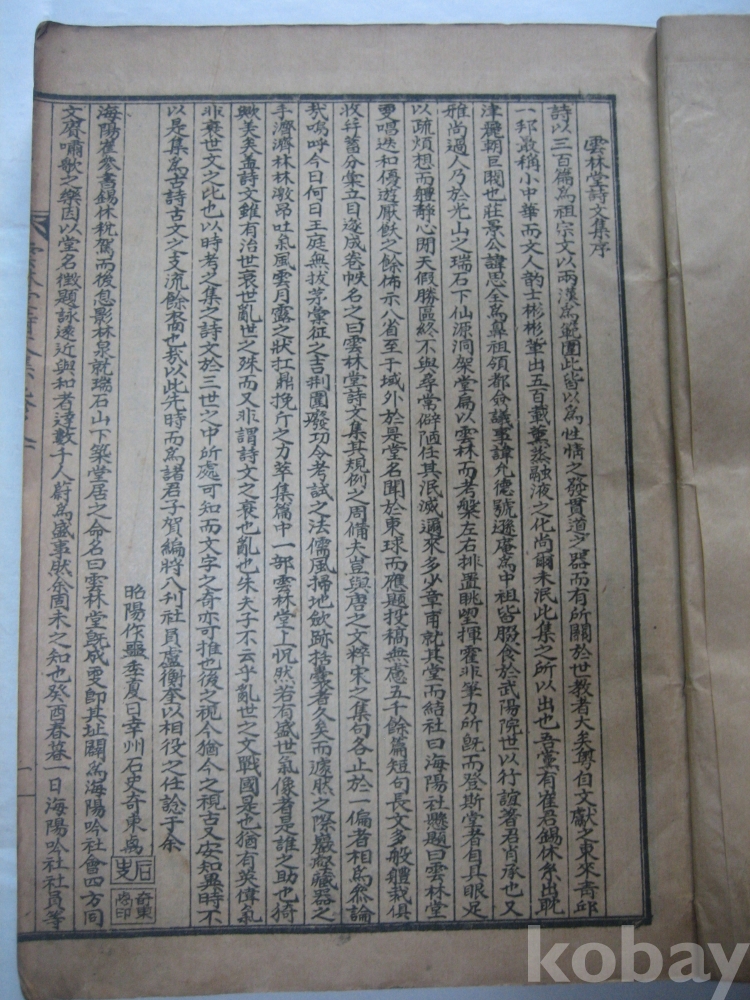 雲林堂詩文集序
詩以三百篇爲祖宗文以兩漢爲範圍此皆以爲性情之發貫道之器而有所關於世敎者大矣粤自文獻之東來靑邱
一邦敢稱小中華而文人韵士彬彬輩出五百載薰蒸融液之化尙爾未泯此集之所以出也吾黨有崔君錫休系出耽
津麗朝巨閥也莊景公諱思全爲鼻祖領都僉議事諱允德號遯庵爲中祖皆腏食於武陽院世以行誼著君肖承也又
雅尙過人乃於光山之瑞石下仙源洞架堂扁以雲林而考槃左右排置眺望揮霍非筆力所旣而登斯堂者自具眼足
以疏煩想而軆靜心閒天假勝區終不與尋常僻陋任其泯滅邇來多少章甫就其堂而結社曰海陽社懸題曰雲林堂
更唱迭和優遊厭飫之餘佈示八省至于域外於是堂名聞於東球而應題投稿無慮五千餘篇短句長文多般軆裁俱
收幷蓄分彙立目遂成卷帙名之曰雲林堂詩文集其規例之周備夫豈與唐之文粹宋之集句各止於一偏者相爲叅論
哉嗚呼今日何日王庭無拔茅彙征之吉荆圍廢功令考試之法儒風掃地歛跡括囊者久矣而遽然之際巖壑藏器之
手濟濟林林激昂吐氣風雲月露之狀扛鼎挽斤之力萃集篇中一部雲林堂上怳然若有盛世氣像者是誰之助也猗
歟美矣盖詩文雖有治世衰世亂世之殊而又非謂詩文之衰也亂也朱夫子不云乎亂世之文戰國是也猶有英偉氣
非衰世文之比也以時考之集之詩文於三世之中所處可知而文字之奇亦可推也後之視今猶今之視古又安知異時不
以是集爲古詩古文之支流餘裔也哉以此先時而爲諸君子賀編時八刊社員盧衡奎以相役之任諗于余
昭陽作噩季夏日幸州石史奇東
石史
奇東
印
海陽崔參書錫休稅駕而後息影林泉就瑞石山下築堂居之命名曰雲林堂旣成更卽其址闢爲海陽吟社會四方同
文賡嘯歌之樂因以堂名徵題詠遠近與和者達數千人蔚爲盛事然余固未之知也癸酉春暮一日海陽吟社社員等